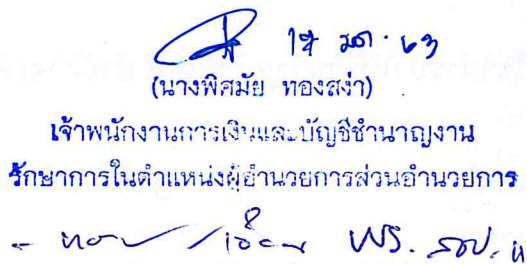 17 มค. 63
(นางพิศมัย ทองสง่า)
เจ้าพนักงานการเงินและบัญชีชำนาญงาน
รักษาการในตำแหน่งผู้อำนวยการส่วนอำนวยการ